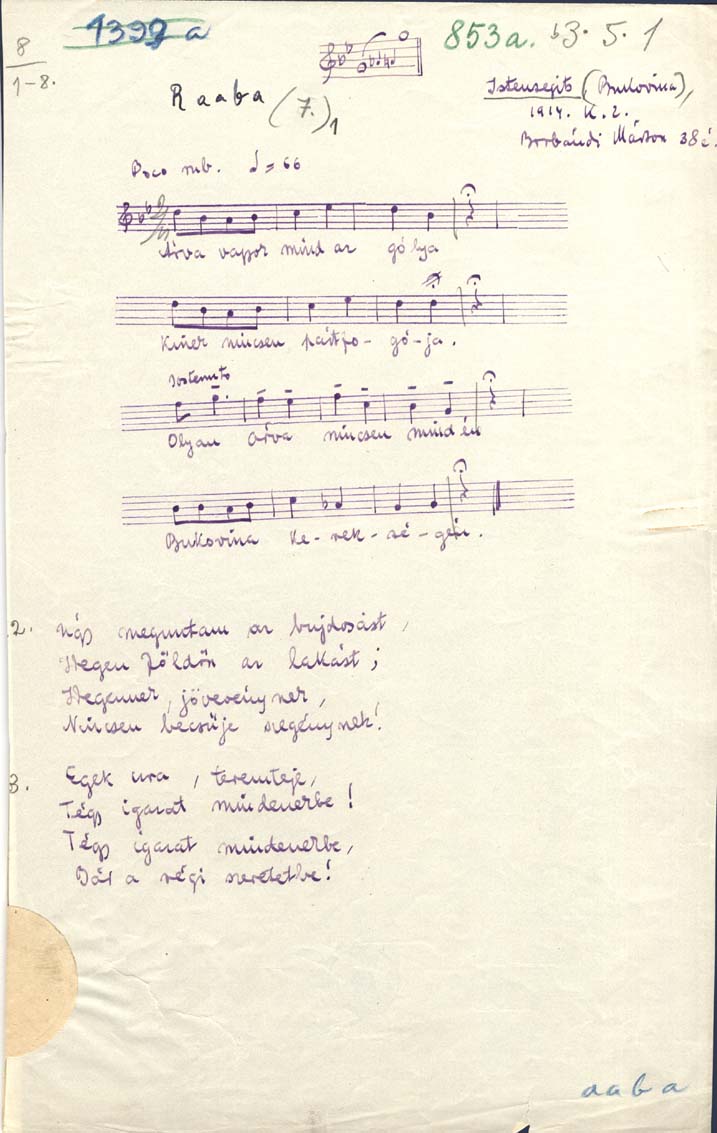 8
1-8.
1392 a
853a. b3. 5. 1
Raaba (7.)1
Istensegits (Bukovina),
1914. K. 2.
Borbándi Márton 38 é.
Poco rub. = 66
Árva vagyok mind az gólya
Kinek nincsen pártfo-gó-ja.
sostenuto
Olyan árva nincsen mind én
Bukovina Ke-rek-sé-gén.
2. Ugy meguntam az bujdosást,
Idegen földön az lakást;
Idegennek, jövevénynek,
Nincsen becsüje szegénynek!
3. Egek ura, teremteje,
Tégy igazat mindenekbe!
Tégy igazat mindenekbe,
Bár a régi szeretetbe!
aaba